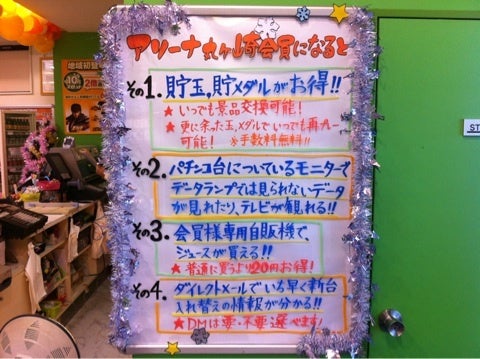 アリーナ丸ヶ崎会員になると
その1. 貯玉,貯メダルがお得!!
★いつでも景品交換可能!
★更に余った玉,メダルでいつでも再プレー
可能! ※手数料無料!!
その2. パチンコ台についているモニターで
データランプでは見られないデータ
が見れたり、テレビが観れる!!
その3. 会員様専用自販機で、
ジュースが買える!!
★普通に買うより20円お得!
その4. ダイレクトメールでいち早く新台
入れ替えの情報が分かる!!
★DMは要・不要選べます!
地域初登
2倍
ST